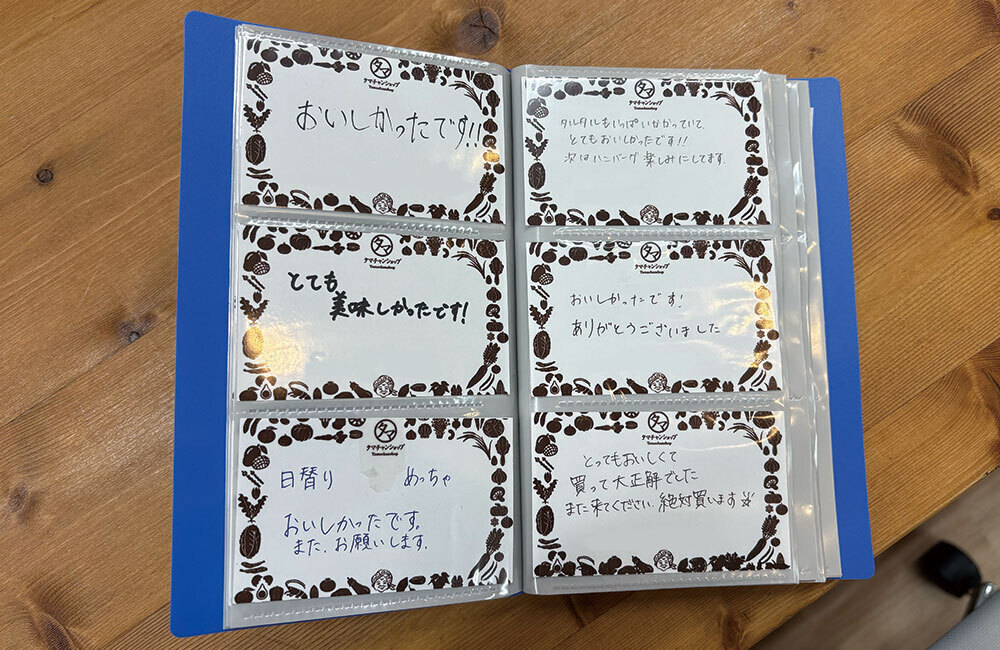 タマ
タマチャンショップ
Tamachanshop
おいしかったです!!
タマ
タマチャンショップ
Tamachanshop
とても
美味しかったです!
タマ
タマチャンショップ
Tamachanshop
日替り めっちゃ
おいしかったです。
また、お願いします。
タマ
タマチャンショップ
Tamachanshop
タルタルもいっぱいかかっていて、
とてもおいしかったです!!
次はハンバーグ楽しみにしてます。
タマ
タマチャンショップ
Tamachanshop
おいしかったです!
ありがとうございました
タマ
タマチャンショップ
Tamachanshop
とってもおいしくて
買って大正解でした
また来てください。絶対買います☆